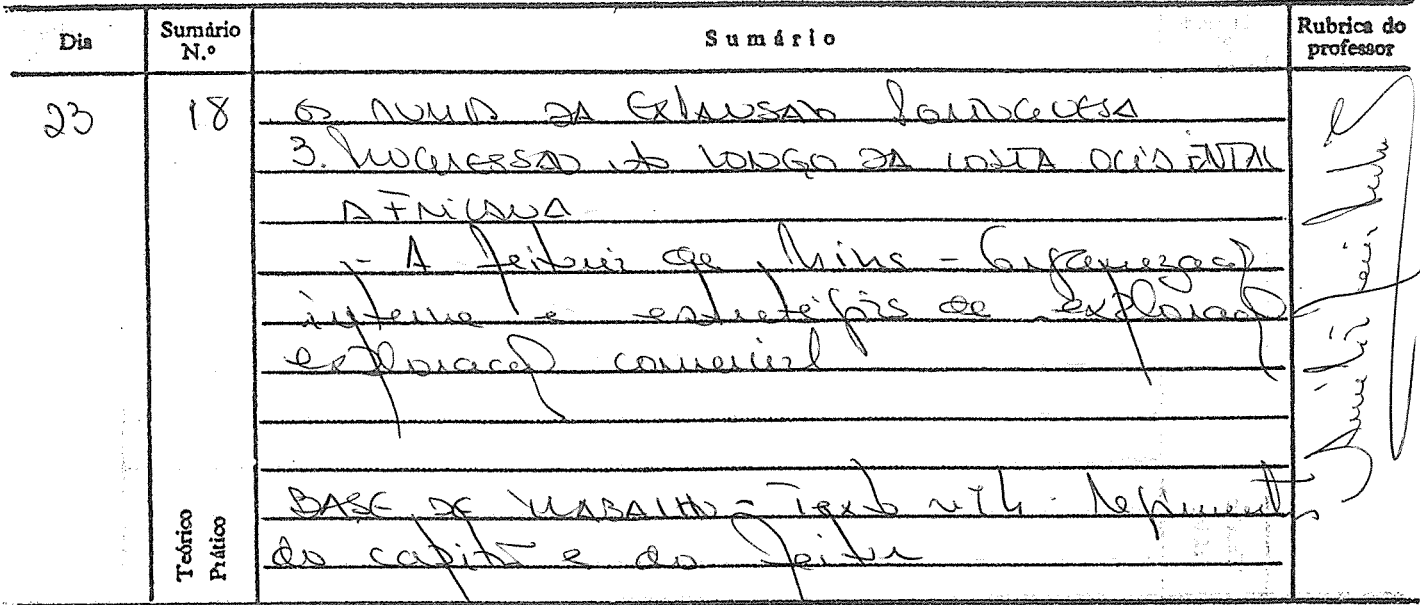 Dia
Sumário N.º
Sumário
Rubrica do professor
23
18
Os rumos da Expansão Portuguesa
3. Progressão ao longo da costa ocidental
Africana
- A feitoria da Mina - Organização
interna e estratégias de exploração
exploração comercial
BASE DE TRABALHO - Texto nº 14 - Regimento
do capitão e do feitor
Teórico
Prático